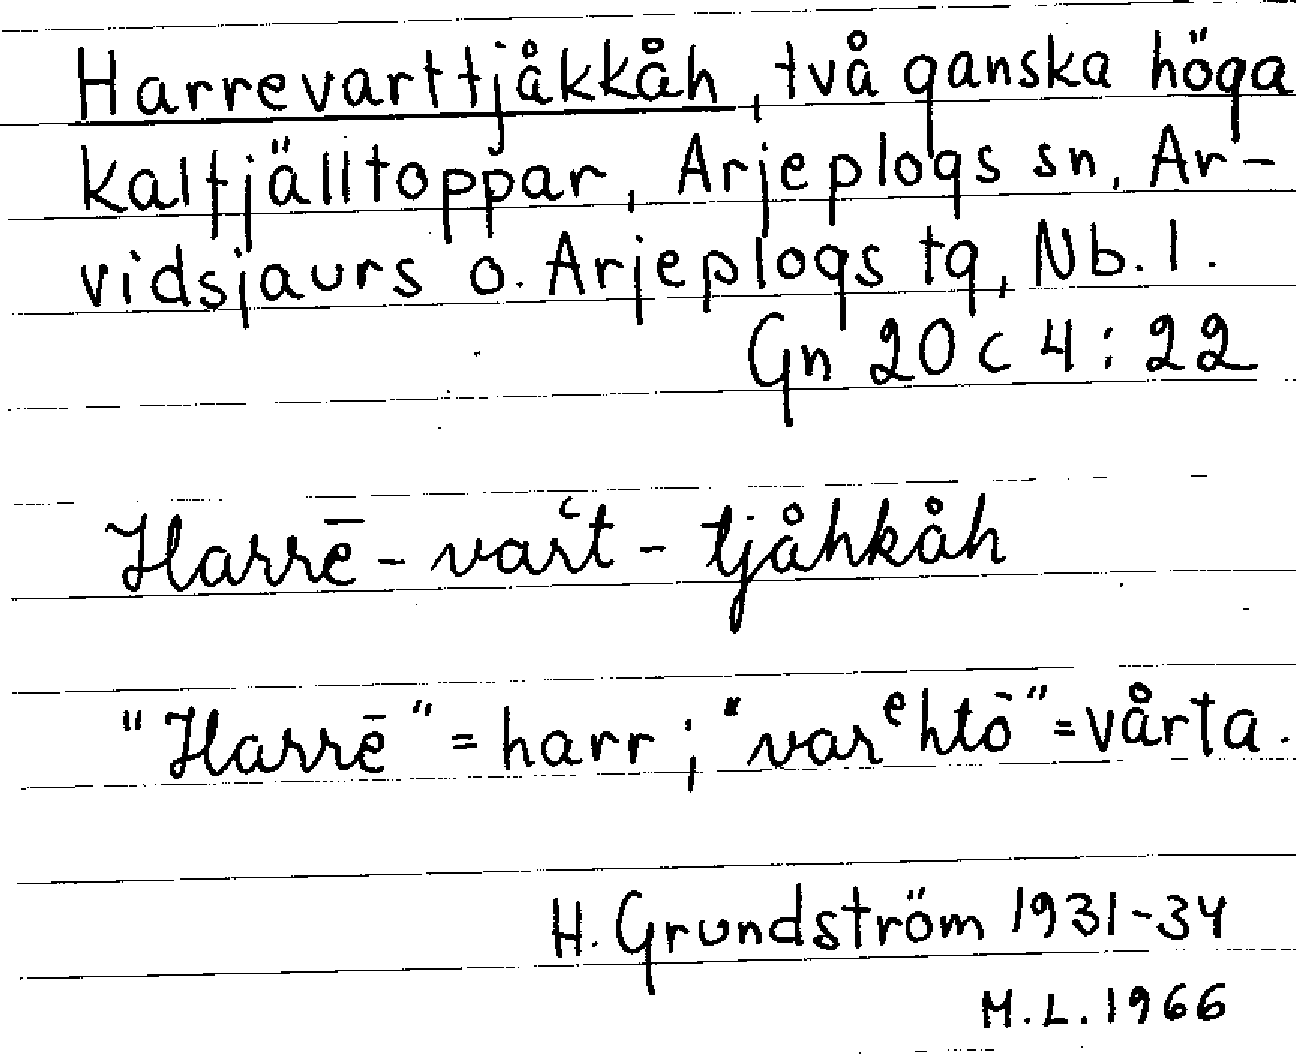 Harrevarttjåkkåh, två ganska höga
kalfjälltoppar, Arjeplogs sn, Ar-
vidsjaurs o. Arjeplogs tg, Nb. l.
Gn 20 c 4 : 22
Harrē - varʿt - tjåhkåh
"Harrē" = harr ; "varᵉhtō" = vårta.
H. Grundström 1931-34
M. L. 1966